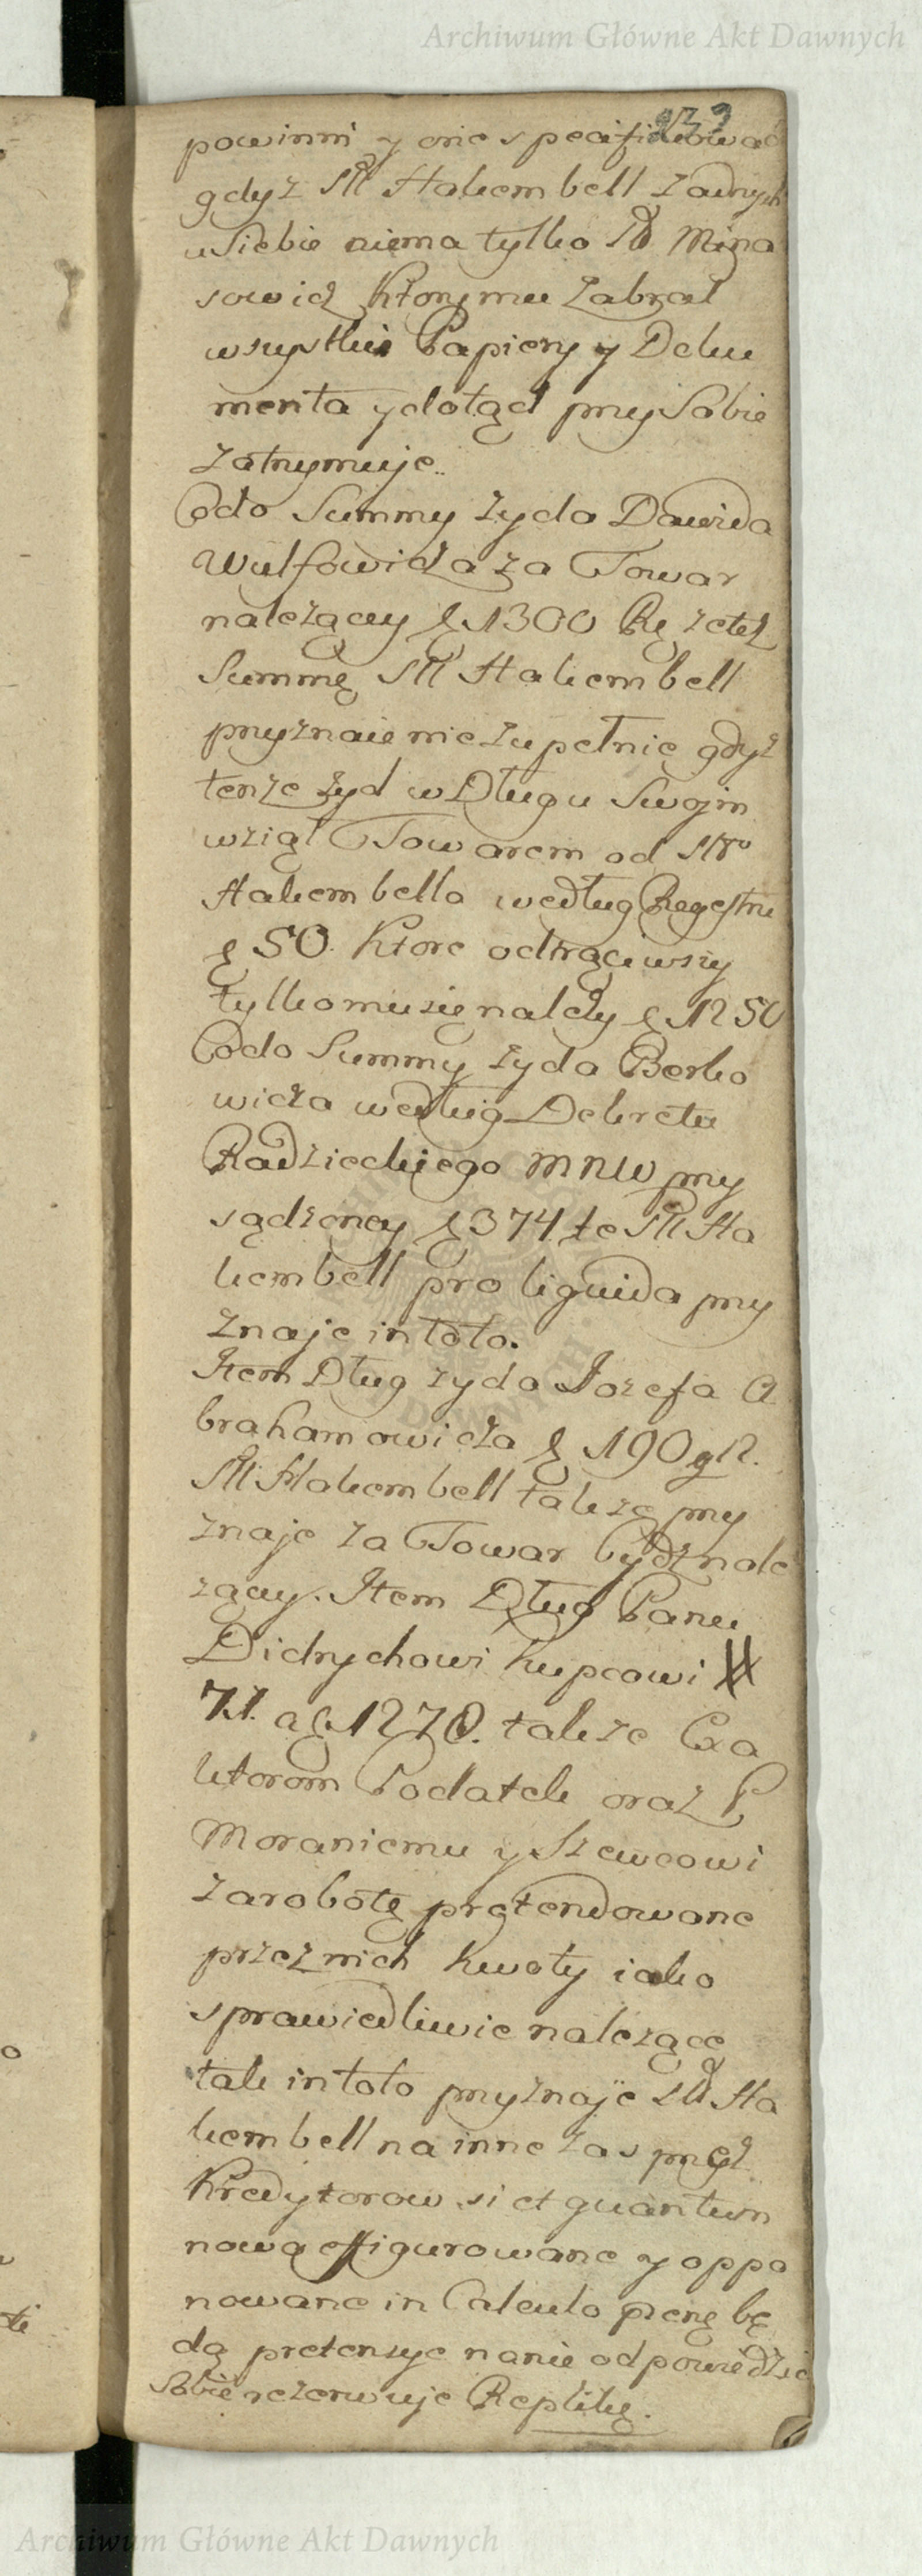 Archiwum Główne Akt Dawnych
powinni y one specifikować
gdyż Sł Hakembell żadnych
u Siebie niema tylko Sł Mina
sowicz Ktory mu Zabrał
wszystkie Papiery y Doku
menta y dotąd przy Sobie
zatrzymuje.
Co do Summy żyda Dawida
Wulfowicza za Towar
należącey 1300 Rę Zctęż
Summę Sł Hakembell
przyznaie nie Zupełnie gdyż
tenże żyd w Długu Swojm
wziął Towarem od Słго
Hakembella według Regestru
50. Ktore odtrąciwszy
tylko mu się należy 1250
Co do Summy żyda Berko
wicza według Dekretu
Radzieckiego MNW przy
sądzoney 374 te Sł Ha
kembell pro liquida przy
Znaje in toto.
Item Dług żyda Jozefa A
brahamowicza 190 g 12.
Sł Hakembell także przy
znaje za Towar bydź nale
żący. Item Dług Panu
Didrychowi Kupcowi #
71. a 1278. także Exa
ktorom Podatek oraz P
Moraniemu y Szewcowi
za robotę pretendowane
przez nich kwoty iako
sprawiedliwie należące
tak in toto przyznaje Sł Ha
kembell na inne zas przez
Kredytorow si et quantum
nowo effigurowane y oppo
nowane in Calculo
dą pretensye nanie odpowiedzieć
Sobie rezerwuje Replikę.
Archiwum Główne Akt Dawnych